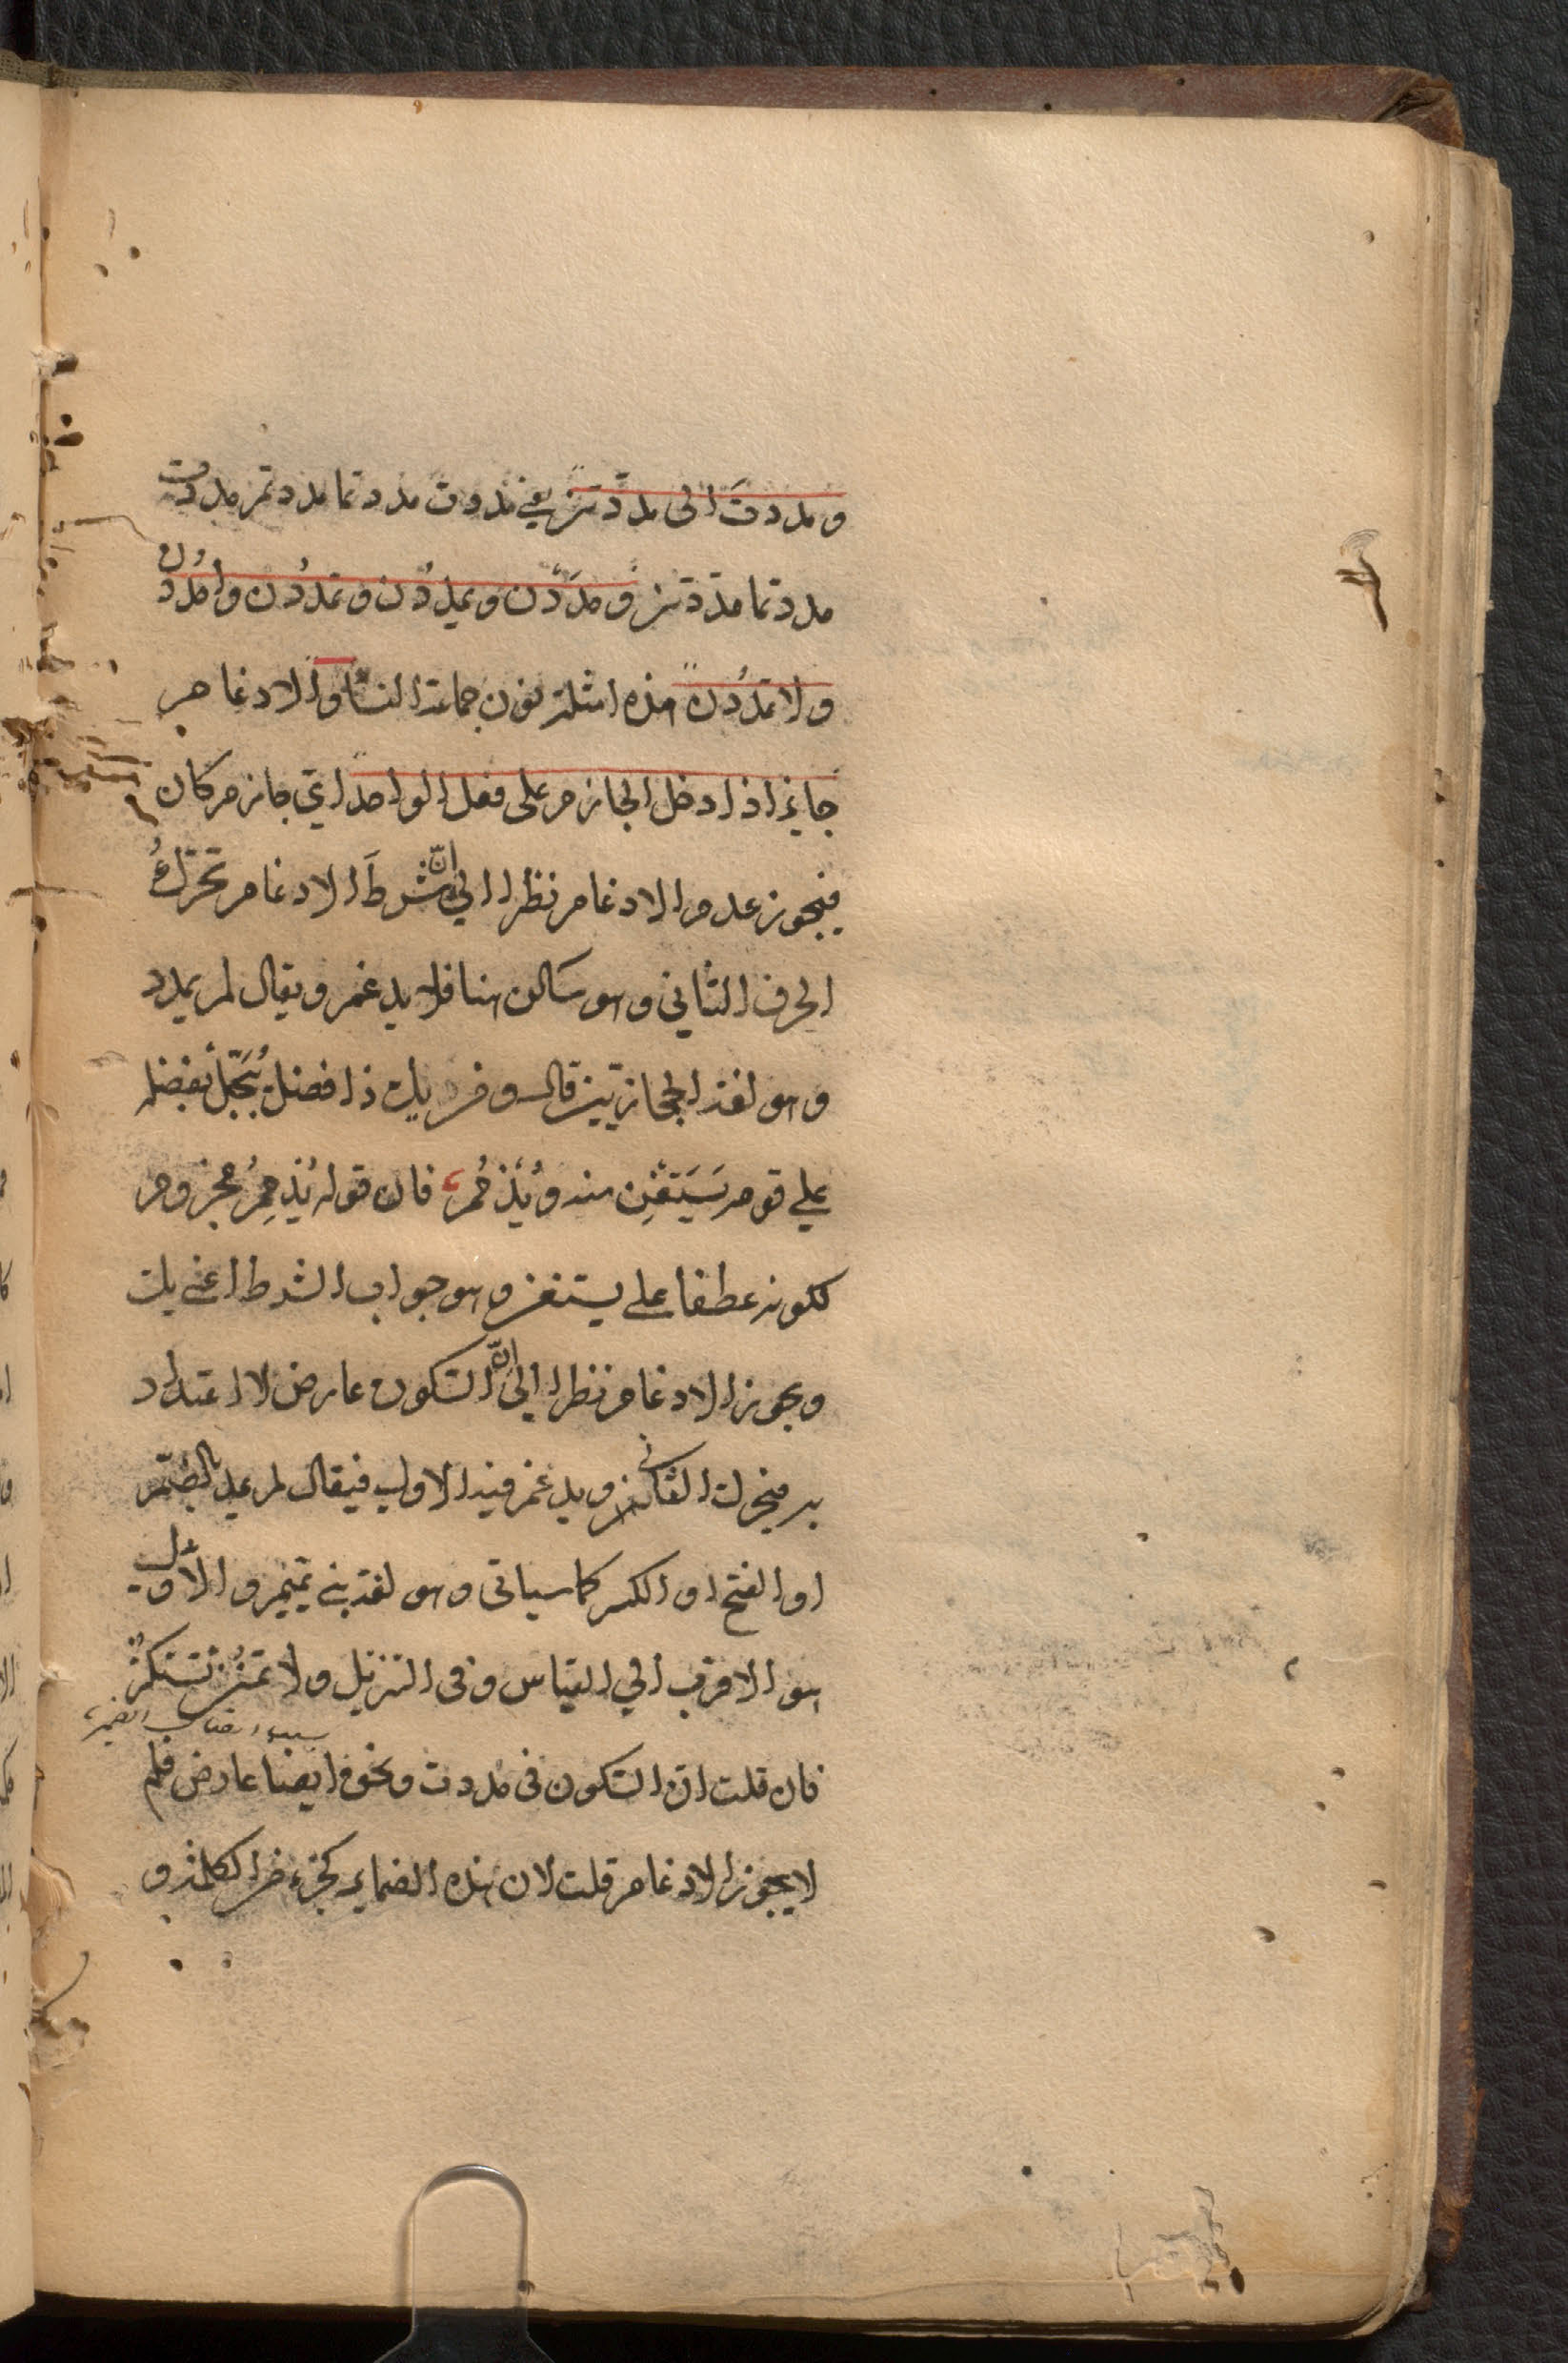 ومددتَ الى مددتن يعني مددت مددتما مددتم مددت
مددتما مددتن ومددن ويمددن وتمددن وامددن
ولا تمددن هذه امثلة نون جماعة النساء والادغام
جايز اذا دخل الجازم على فعل الواحد اي جازم كان
فيجوز عدم الادغام نظرا الى انّ شرطَ الادغام تحرّك
الحرف الثاني وهو ساكن هنا فلا يدغم ويقال لم يمدد
وهو لغة الحجازيين قال ومن يك ذا فضل يبخل بفضله
على قوم يستغن منه ويذمم فان قوله يذمم مجزوم
لكونه عطفا على يستغن وهو جواب الشرط اعني يك
ويجوز الادغام نظرا الى انّ السكون عارض لا اعتداد
به فيحرك الثاني ويدغم فيه الاول فيقال لم يمد بالضم
او الفتح او الكسر كما سياتي وهو لغة بني تميم والاول
هو الاقرب الى القياس وفي التنزيل ولا تمنن تستكثر
فان قلت ان السكون في مددت ونحوه ايضا عارض فلم
لا يجوز الادغام قلت لان هذه الضماير كجزء من الكلمة و